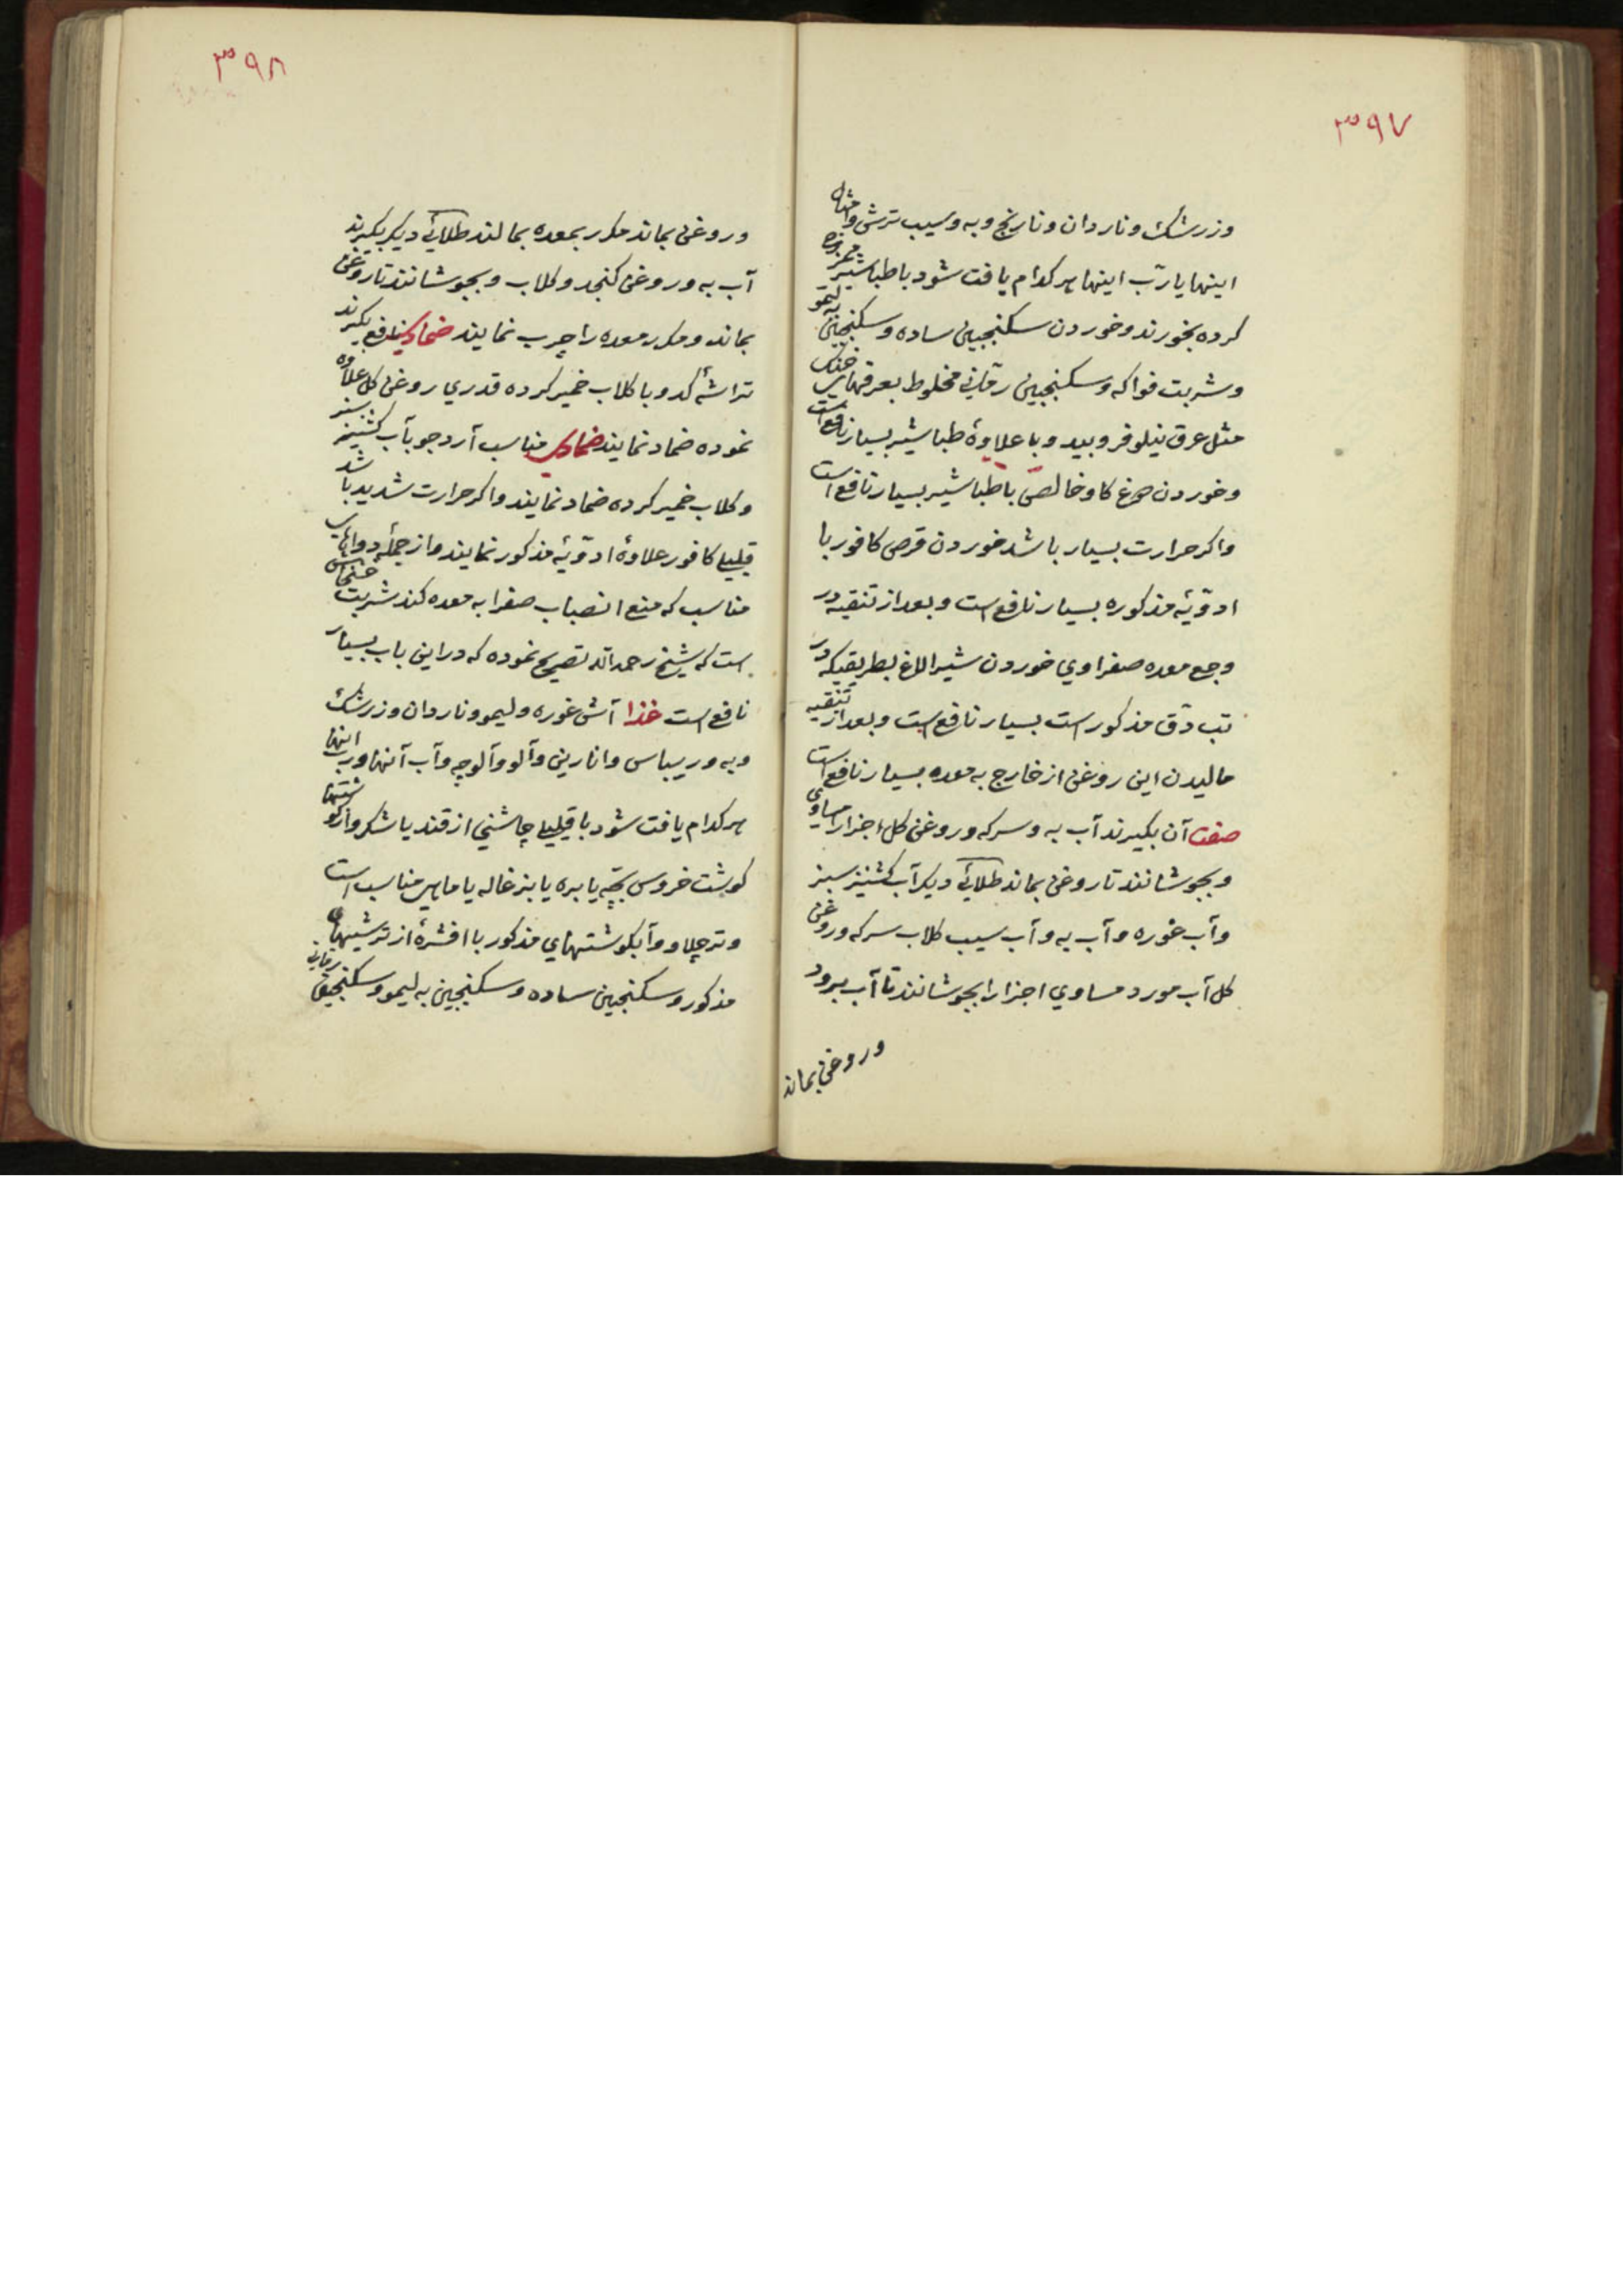 ۳۹۷
وزرشک وناردان ونارنج وبه وسیب ترش وامثال
اینها یا ربّ اینها هر کدام یافت شود با طباشیر ممزوج
کرده بخورند وخوردن سکنجبین ساده وسکنجبین لیمو
وشربت فواکه وسکنجبین رمّانی مخلوط بعرقهای خنک
مثل عرق نیلوفر وبید وبا علاوهٔ طباشیر بسیار نافع است
وخوردن دوغ کاو خالص با طباشیر بسیار نافع است
واکر حرارت بسیار باشد خوردن قرص کافور با
ادویّهٔ مذکوره بسیار نافع است وبعد از تنقیه در
وجع معده صفراوي خوردن شیر الاغ بطریقیکه در
تب دّق مذکور است بسیار نافع است وبعد از تنقیه
مالیدن این روغن از خارج به معده بسیار نافع است
صفت آن بکیرند آب به وسرکه وروغن کل اجزا مساوي
وبجوشانند تا روغن بماند طلائے دیکر آب کشنیز سبز
وآب غوره وآب به وآب سیب کلاب سرکه وروغن
کل آب مورد مساوي اجزا را بجوشانند تا آب برود
وروغن بماند
۳۹۸
وروغن بماند مکرر بمعده بمالند طلائے دیکر بکیرند
آب به وروغن کنجد وکلاب وبجوشانند تا روغن
بماند ومکرر معده را چرب نمایند ضمادي نافع بکیرند
تراشهٔ کدو با کلاب خمیر کرده قدري روغن کل علاوه
نموده ضماد نمایند ضمادي مناسب آرد جو بآب کشنیز سبز
وکلاب خمیر کرده ضماد نمایند واکر حرارت شدید باشد
قلیلي کافور علاوهٔ ادویّهٔ مذکور نمایند واز جملهٔ دواهای
مناسب که منع انصباب صفرا به معده کند شربت خشخاش
است که شیخ رحمه الله تصریح نموده که در این باب بسیار
نافع است غذا آش غوره ولیمو وناردان وزرشک
وبه وریباس وانارین وآلو وآلوچه وآب آنها ورب اینها
هر کدام یافت شود با قلیلي چاشنی از قند یا شکر واز کوشتها
کوشت خروس بچّه یا بره یا بزغاله یا ماهي مناسب است
وتر چلاو وآبکوشتهاي مذکور با افشرهٔ از ترشیهاي
مذکور وسکنجبین ساده وسکنجبین به لیمو وسکنجبین رمانی